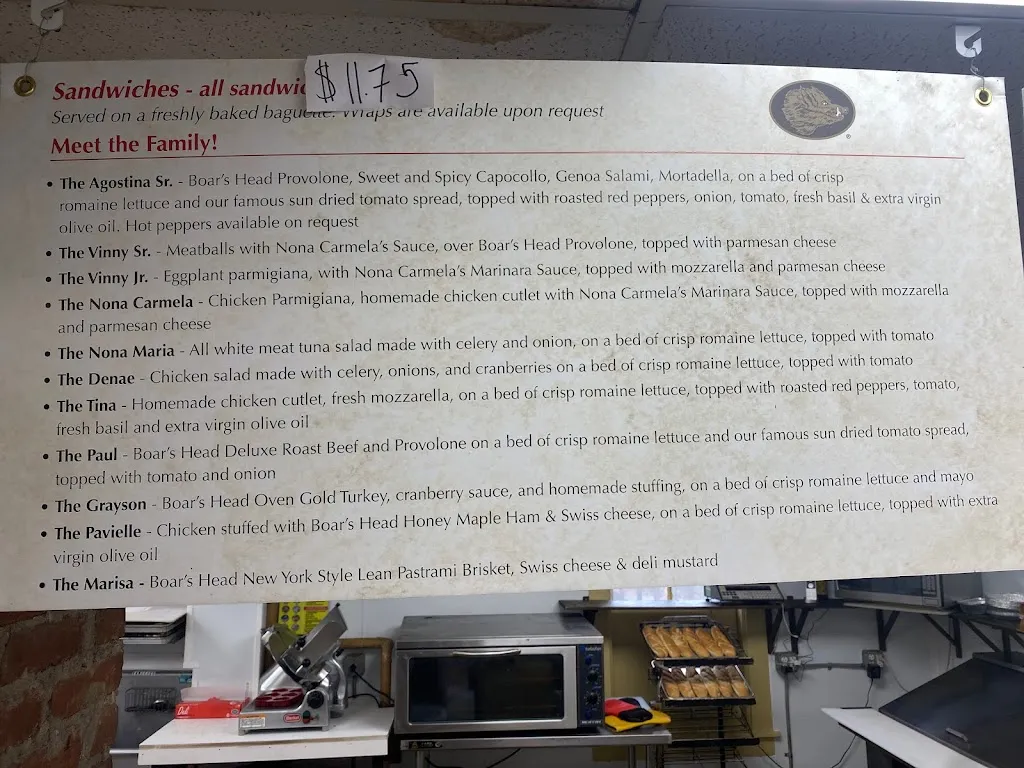 Sandwiches - all sandwic
$ 11.75
Served on a freshly baked baguette. Wraps are available upon request
Meet the Family!
• The Agostina Sr. - Boar's Head Provolone, Sweet and Spicy Capocollo, Genoa Salami, Mortadella, on a bed of crisp
romaine lettuce and our famous sun dried tomato spread, topped with roasted red peppers, onion, tomato, fresh basil & extra virgin
olive oil. Hot peppers available on request
• The Vinny Sr. - Meatballs with Nona Carmela's Sauce, over Boar's Head Provolone, topped with parmesan cheese
• The Vinny Jr. - Eggplant parmigiana, with Nona Carmela's Marinara Sauce, topped with mozzarella and parmesan cheese
• The Nona Carmela - Chicken Parmigiana, homemade chicken cutlet with Nona Carmela's Marinara Sauce, topped with mozzarella
and parmesan cheese
• The Nona Maria - All white meat tuna salad made with celery and onion, on a bed of crisp romaine lettuce, topped with tomato
• The Denae - Chicken salad made with celery, onions, and cranberries on a bed of crisp romaine lettuce, topped with tomato
• The Tina - Homemade chicken cutlet, fresh mozzarella, on a bed of crisp romaine lettuce, topped with roasted red peppers, tomato,
fresh basil and extra virgin olive oil
• The Paul - Boar's Head Deluxe Roast Beef and Provolone on a bed of crisp romaine lettuce and our famous sun dried tomato spread,
topped with tomato and onion
• The Grayson - Boar's Head Oven Gold Turkey, cranberry sauce, and homemade stuffing, on a bed of crisp romaine lettuce and mayo
• The Pavielle - Chicken stuffed with Boar's Head Honey Maple Ham & Swiss cheese, on a bed of crisp romaine lettuce, topped with extra
virgin olive oil
• The Marisa - Boar's Head New York Style Lean Pastrami Brisket, Swiss cheese & deli mustard